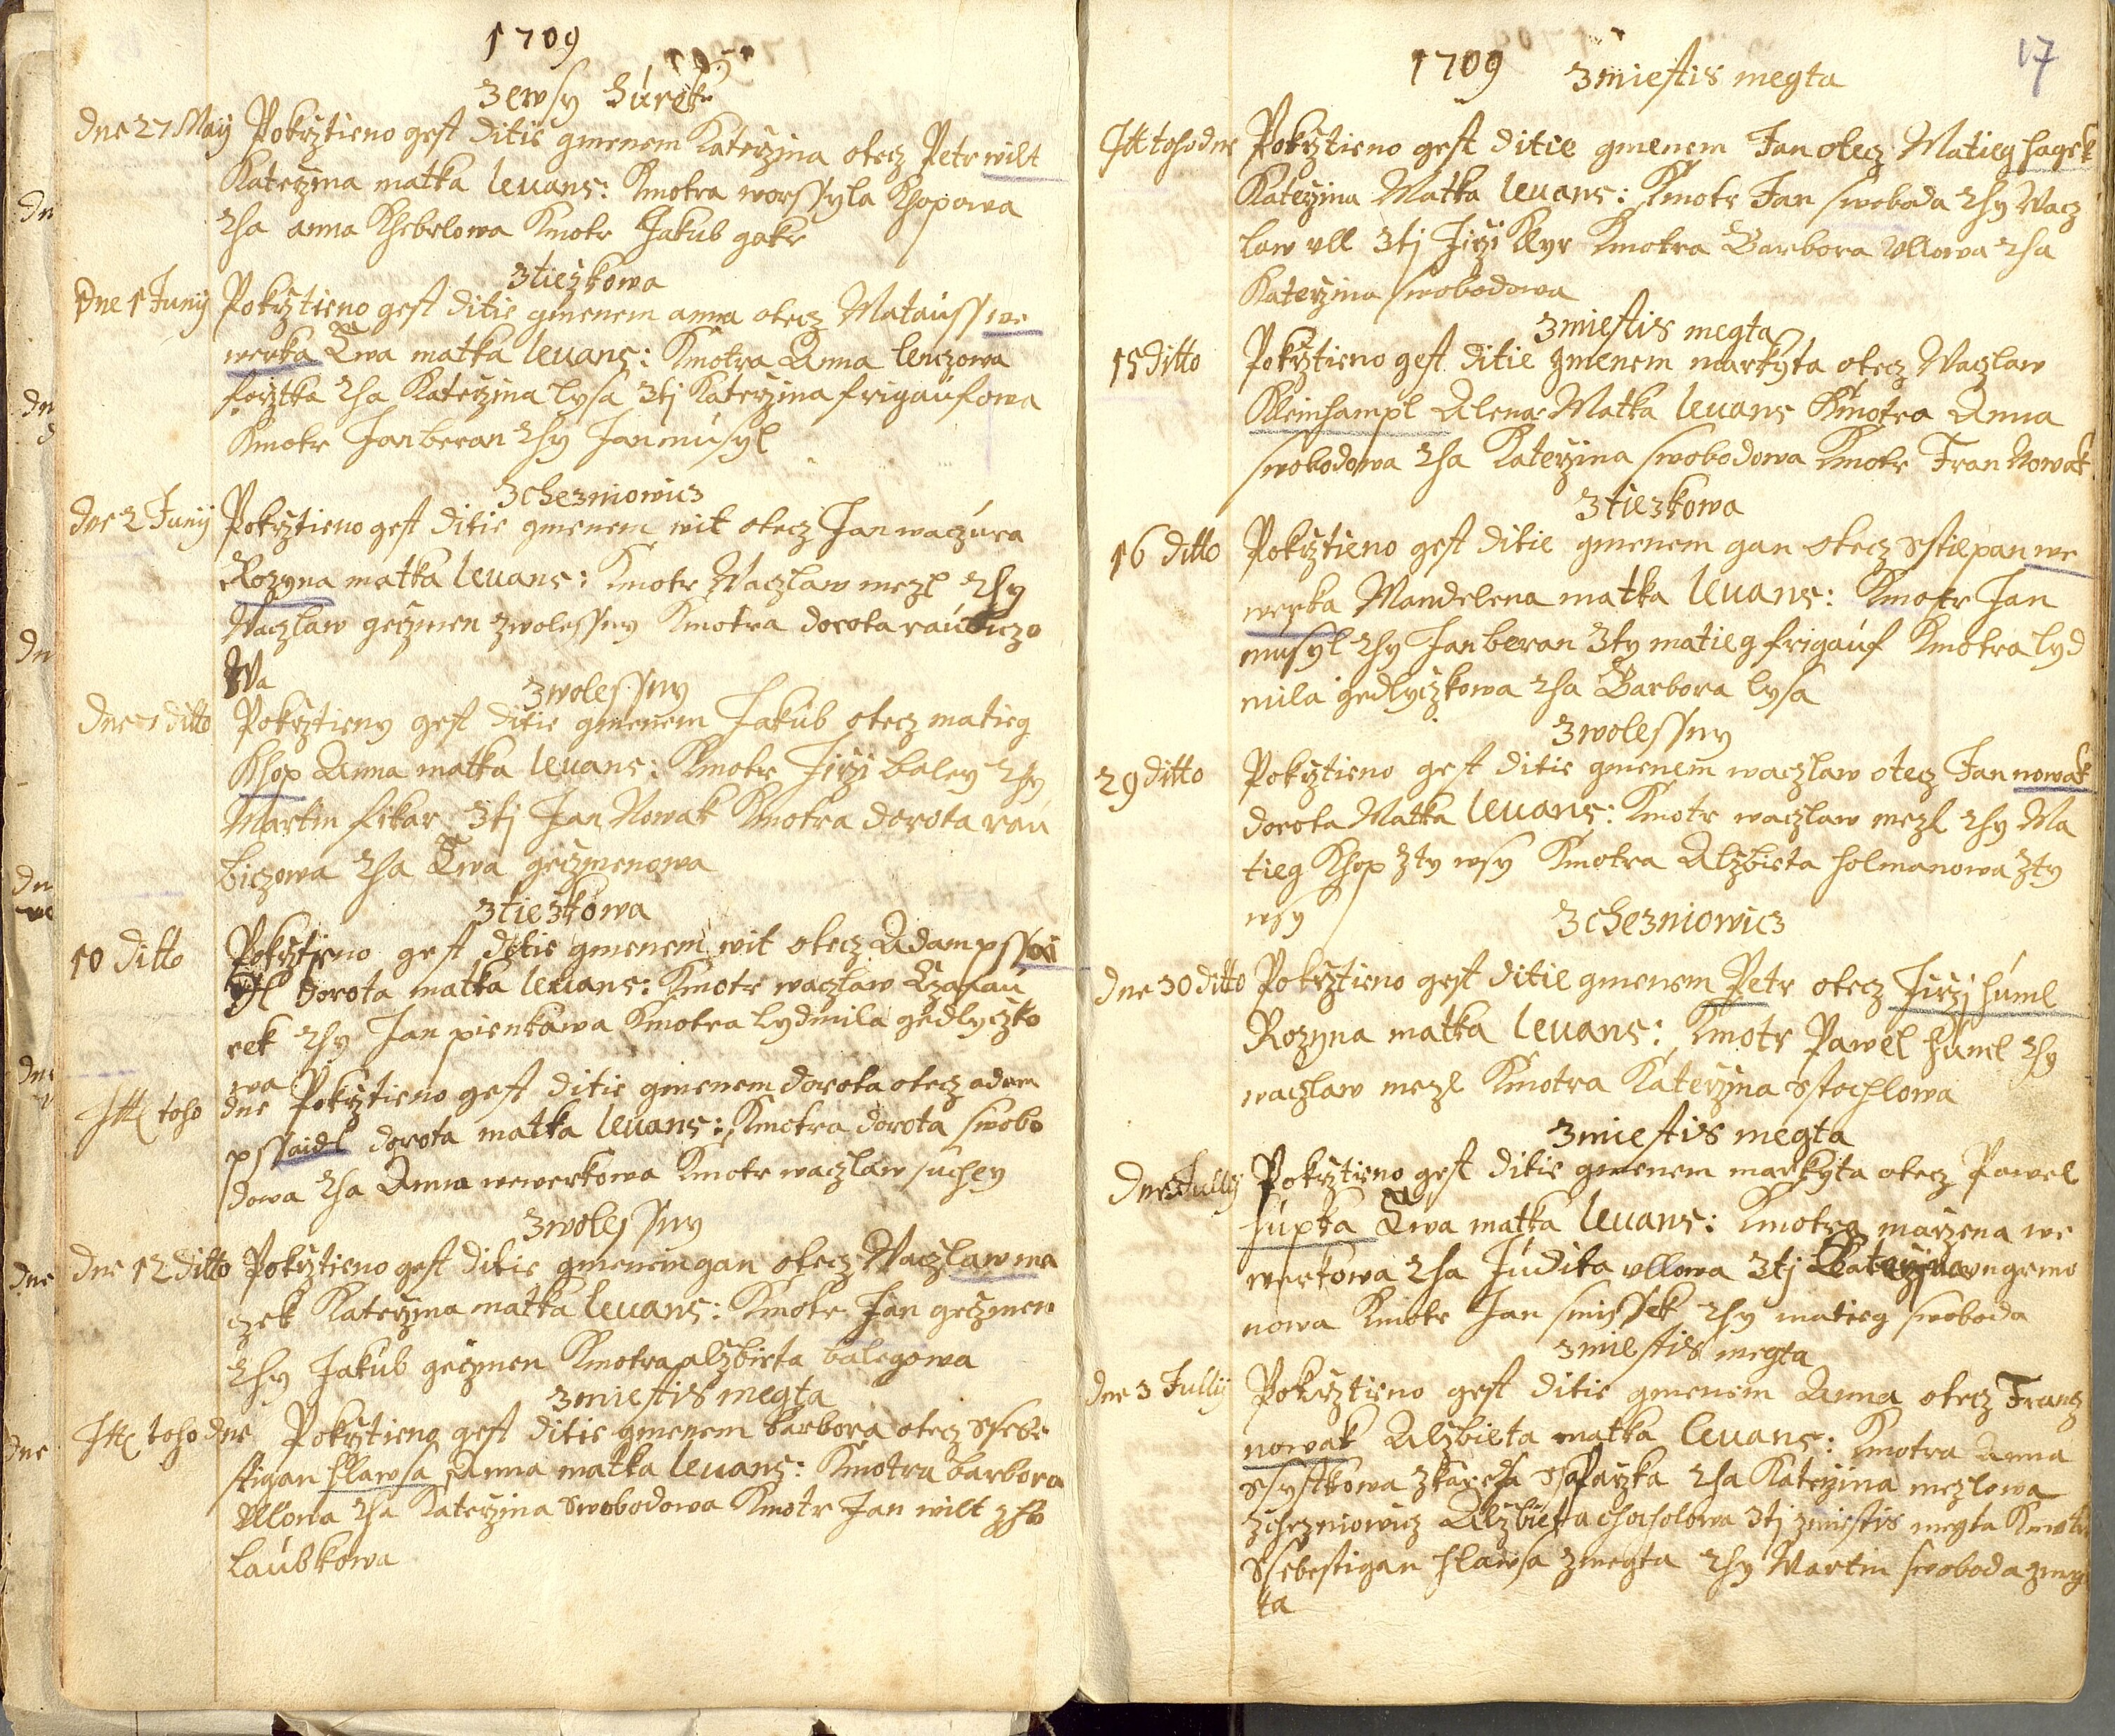 1709
Zewsy húrek
dne 27 Maÿ Pokrztieno gest ditie gmenem Katerzina otecz Petr wilt
Katerzina matka levans: Kmotra worssyla Khopowa
2ha anna Khebelowa Kmotr Jakub gakr
Ztiezkowa
Dne 1 Junÿ Pokrztieno gest ditie gmenem anna otecz Mataúss we
werka Ewa matka levans: Kmotra Anna lenczowa
forztka 2ha Katerzina lysa 3tj Katerzina frigaúfowa
Kmotr Jan beran 2hy Jan músyl
Zchezniowicz
dne 2 Junÿ Pokrztieno gest ditie gmenem wit otecz Jan waczúra
Rozyna matka levans: Kmotr Waczlaw mezl 2hy
Waczlaw geczmen zwolessny Kmotra dorota raúbiczo
Wa
Zwolessny
dne 7 ditto Pokrztieny gest ditie gmenem Jakúb otecz matieg
Khop Anna matka levans: Kmotr Jirzi baley 2hy
Martin fikar 3tj Jan Nowak Kmotra dorota raú
biczowa 2ha Ewa geczmenowa
Ztiezkowa
10 ditto Pokrztieno gest ditie gmenem wit otecz Adam pssai
dl dorota matka levans: Kmotr waczlaw
rek 2hy Jan pienkawa Kmotra lydmila gedlyczko
wa
Itt toho dne Pokrztieno gest ditie gmenem dorota otecz adam
pssaidl dorota matka levans: Kmotra dorota swobo
dowa 2ha Anna wewerkowa Kmotr waczlaw súchey
Zwolessny
dne 12 ditto Pokrztieno gest ditie gmenem gan otecz Waczlaw ma
czek Katerzina matka levans: Kmotr Jan geczmen
2hy Jakúb geczmen Kmotra alzbieta balegowa
Zmiestis megta
Itt toho dne Pokrztieno gest ditie gmenem barbora otecz ssebe
stigan hlawsa Anna matka levans: Kmotra barbora
Ullowa 2ha Katerzina Swobodowa Kmotr Jan wilt zho
laúbkowa
17
1709 Zmiestis megta
Itt toho dne Pokrztieno gest ditie gmenem Jan otecz Matieg hagek
Katerzina Matka levans: Kmotr Jan swoboda 2hy Wacz
law ull 3tj Jirzi Kyr Kmotra Barbora Ullowa 2ha
Katerzina swobodowa
Zmiestis megta
15 ditto Pokrztieno gest ditie gmenem markyta otecz Waczlaw
Kleinhampl Alena Matka levans Kmotra Anna
swobodowa 2ha Katerzina swobodowa Kmotr Fran Nowak
Ztiezkowa
16 ditto Pokrztieno gest ditie gmenem gan otecz Sstiepan we
werka Mandelena matka levans: Kmotr Jan
musyl 2hy Jan beran 3ty matieg frigaúf Kmotra lyd
mila gedlyczkowa 2ha Barbora lysa
Zwolessny
29 ditto Pokrztieno gest ditie gmenem waczlaw otecz Jan nowak
dorota Matka levans: Kmotr waczlaw mezl 2hy Ma
tieg Khop zty wsy Kmotra Alzbieta holmanowa zty
wsy
Zchezniowicz
dne 30 ditto Pokrztieno gest ditie gmenem Petr otecz Jirzj húml
Rozyna matka levans: Kmotr Pawel húml 2hy
waczlaw mezl Kmotra Katerzina sstochlowa
Zmiestis megta
Dne Jullÿ Pokrztieno gest ditie gmenem markyta otecz Pawel
húpka Ewa matka levans: Kmotra marzena we
werkowa 2ha Júdita ullowa 3tj Katerzina ungrmo
nowa Kmotr Jan smissek 2hy matieg swoboda
Zmiestis megta
dne 3 Jullÿ Pokrztieno gest ditie gmenem Anna otecz Frantz
nowak Alzbieta matka levans: Kmotra Anna
ssystkowa ssafarzka 2ha Katerzina mezlowa
Zchezniowicz Alzbieta chocholowa 3tj zmiestis megta Kmotr
Ssebestigan hlawsa zmegta 2hy Martin swoboda zmeg
ta